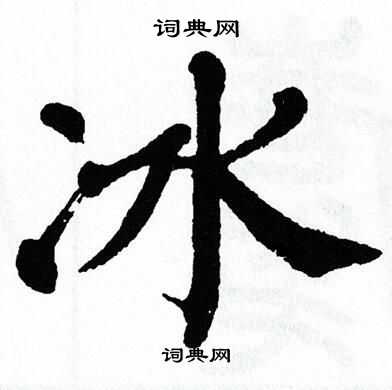 词典网
冰
词典网